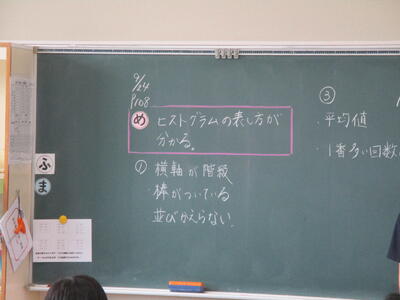 9/24
P108
め ヒストグラムの表し方が
分かる。
① 横軸が階級
・棒がついている
並びかえらない。
③
・平均値
・1番多い回数
ふ
ま